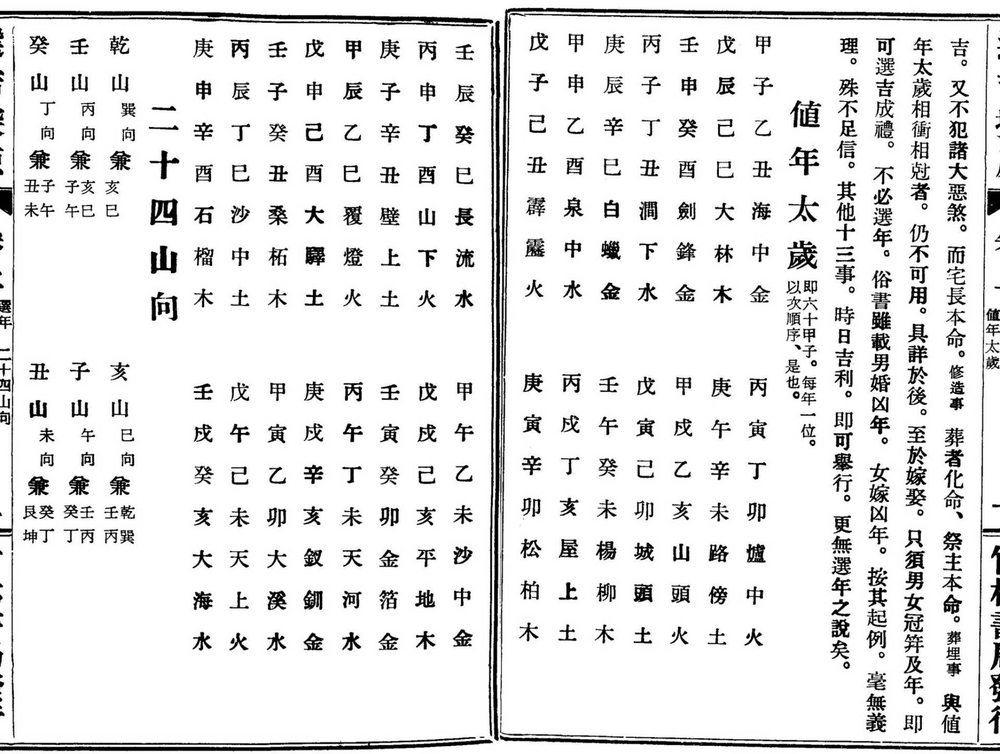 值年太歲
吉。又不犯諸大惡煞。而宅長本命。修造事 葬者化命、祭主本命。葬埋事 與值
年太歲相衝相尅者。仍不可用。具詳於後。至於嫁娶。只須男女冠筓及年。即
可選吉成禮。不必選年。俗書雖載男婚凶年。女嫁凶年。按其起例。毫無義
理。殊不足信。其他十三事。時日吉利。即可舉行。更無選年之說矣。
值年太歲 即六十甲子。每年一位。以次順序、是也。
甲子乙丑海中金 丙寅丁卯爐中火
戊辰己巳大林木 庚午辛未路傍土
壬申癸酉劍鋒金 甲戌乙亥山頭火
丙子丁丑澗下水 戊寅己卯城頭土
庚辰辛巳白蠟金 壬午癸未楊柳木
甲申乙酉泉中水 丙戌丁亥屋上土
戊子己丑霹靂火 庚寅辛卯松柏木
壬辰癸巳長流水 甲午乙未沙中金
丙申丁酉山下火 戊戌己亥平地木
庚子辛丑壁上土 壬寅癸卯金箔金
甲辰乙巳覆燈火 丙午丁未天河水
戊申己酉大驛土 庚戌辛亥釵釧金
壬子癸丑桑柘木 甲寅乙卯大溪水
丙辰丁巳沙中土 戊午己未天上火
庚申辛酉石榴木 壬戌癸亥大海水
二十四山向
乾山巽向兼亥巳 亥山巳向兼乾巽壬丙
壬山丙向兼亥巳子午 子山午向兼壬丙癸丁
癸山丁向兼子午丑未 丑山未向兼癸丁艮坤
選年 二十四山向